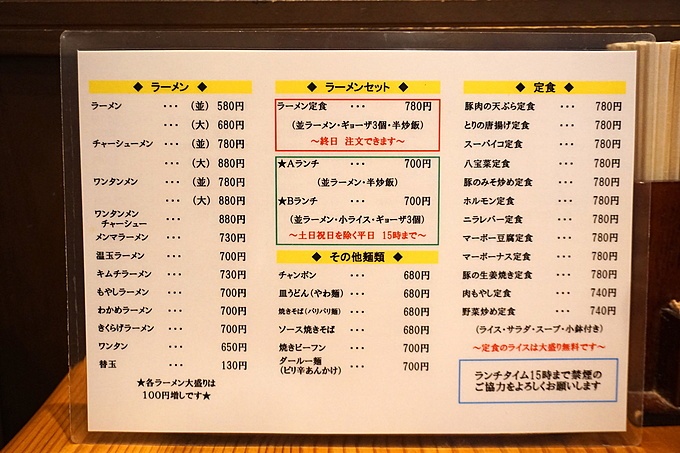 ◆ ラーメン ◆
ラーメン ･･･ (並) 580円
(大) 680円
チャーシューメン ･･･ (並) 780円
(大) 880円
ワンタンメン ･･･ (並) 780円
(大) 880円
ワンタンメン
チャーシュー ･･･ 880円
メンマラーメン ･･･ 730円
温玉ラーメン ･･･ 700円
キムチラーメン ･･･ 730円
もやしラーメン ･･･ 700円
わかめラーメン ･･･ 700円
きくらげラーメン ･･･ 700円
ワンタン ･･･ 650円
替玉 ･･･ 130円
★各ラーメン大盛りは
100円増しです★
◆ ラーメンセット ◆
ラーメン定食 ･･･ 780円
(並ラーメン・ギョーザ3個・半炒飯)
～終日 注文できます～
★Aランチ ･･･ 700円
(並ラーメン・半炒飯)
★Bランチ ･･･ 700円
(並ラーメン・小ライス・ギョーザ3個)
～土日祝日を除く平日 15時まで～
◆ その他麺類 ◆
チャンポン ･･･ 680円
皿うどん(やわ麺) ･･･ 680円
焼きそば(パリパリ麺) ･･･ 680円
ソース焼きそば ･･･ 680円
焼きビーフン ･･･ 700円
ダールー麺
(ピリ辛あんかけ) ･･･ 700円
◆ 定食 ◆
豚肉の天ぷら定食 ･･･ 780円
とりの唐揚げ定食 ･･･ 780円
スーパイコ定食 ･･･ 780円
八宝菜定食 ･･･ 780円
豚のみそ炒め定食 ･･･ 780円
ホルモン定食 ･･･ 780円
ニラレバー定食 ･･･ 780円
マーボー豆腐定食 ･･･ 780円
マーボーナス定食 ･･･ 780円
豚の生姜焼き定食 ･･･ 780円
肉もやし定食 ･･･ 740円
野菜炒め定食 ･･･ 740円
(ライス・サラダ・スープ・小鉢付き)
～定食のライスは大盛り無料です～
ランチタイム15時まで禁煙の
ご協力をよろしくお願いします